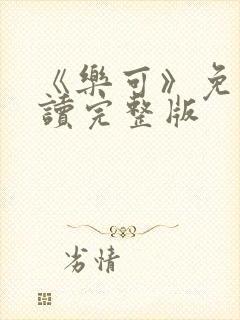 《樂可》免
讀完整版
劣情